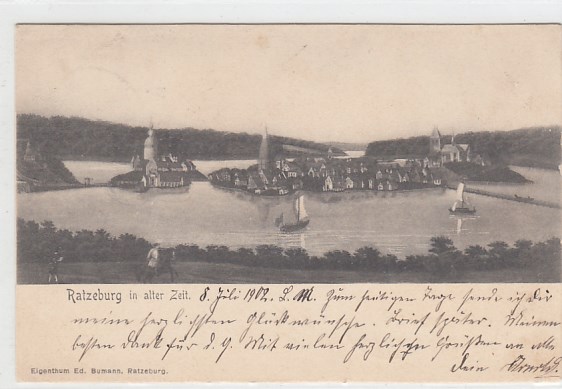 Ratzeburg in alter Zeit. 8. Juli 1902. L. M. Zum heutigen Tage sende ich Dir
meine herzlichsten Glückwünsche. Brief später. Meinen
besten Dank für d. G. Mit vielen herzlichen Grüßen an alle
Dein
Eigenthum Ed. Bumann, Ratzeburg.